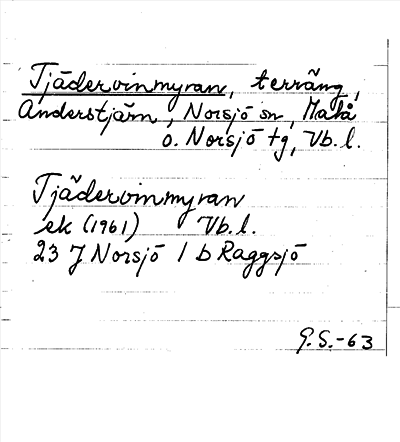 Tjädervinmyran, terräng,
Anderstjärn, Norsjö sn, Malå
o. Norsjö tg, Vb. l.
Tjädervinmyran
ek (1961) Vb. l.
23 J Norsjö 1 b Raggsjö
G. S. -63